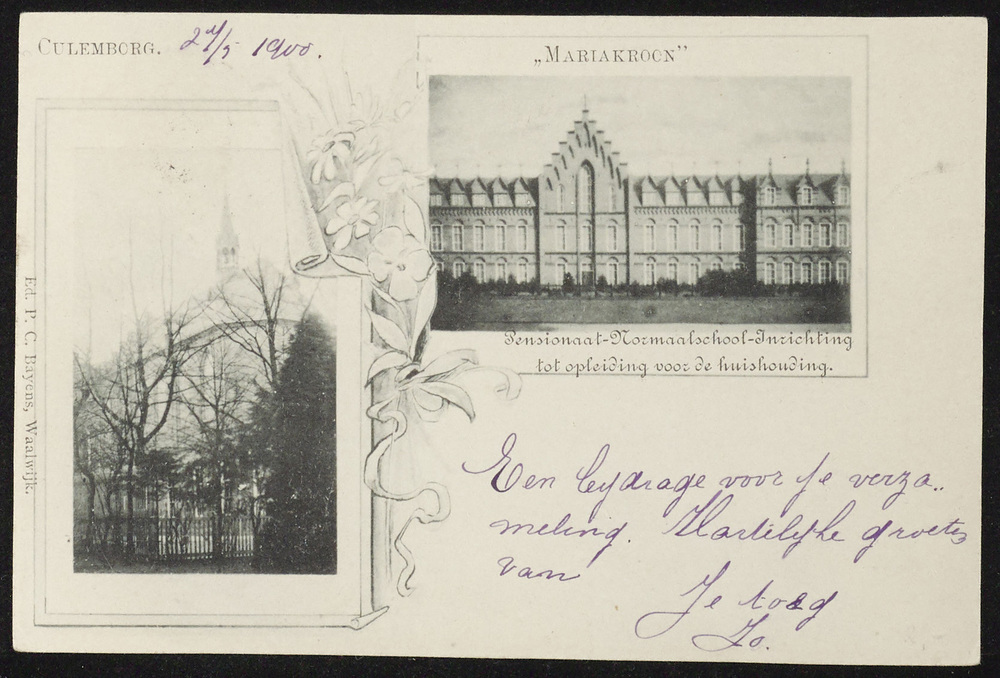 CULEMBORG. 27/5 1900.
„MARIAKROON”
Pensionaat-Normaalschool-Inrichting
tot opleiding voor de huishouding.
Ed. P. C. Bayens, Waalwijk.
Een bijdrage voor je verza„
meling. Hartelijke groeten
van
Je
Zo.